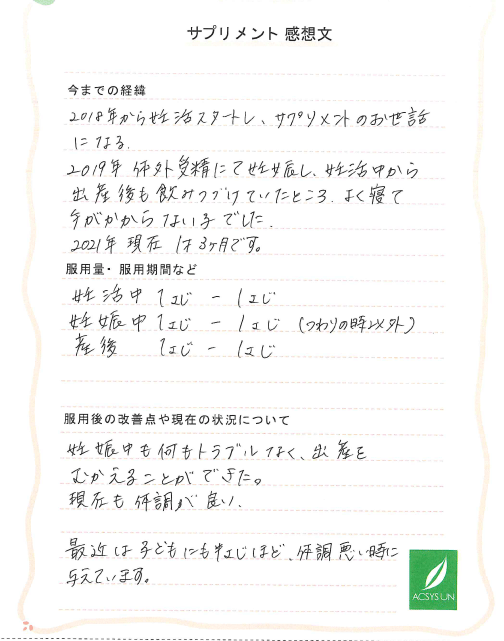 サプリメント 感想文
今までの経緯
2018年から妊活スタートし、サプリメントのお世話
になる.
2019年 体外受精にて妊娠し、妊活中から
出産後も飲みつづけていたところ、よく寝て
手がかからない子でした.
2021年 現在 1才3ヶ月です。
服用量・服用期間など
妊活中 1さじ - 1さじ
妊娠中 1さじ - 1さじ (つわりの時以外)
産後 1さじ - 1さじ
服用後の改善点や現在の状況について
妊娠中も何もトラブルなく、出産を
むかえることができた。
現在も体調が良い.
最近は子どもにも1/2さじほど、体調悪い時に
与えています。
ACSYS UN